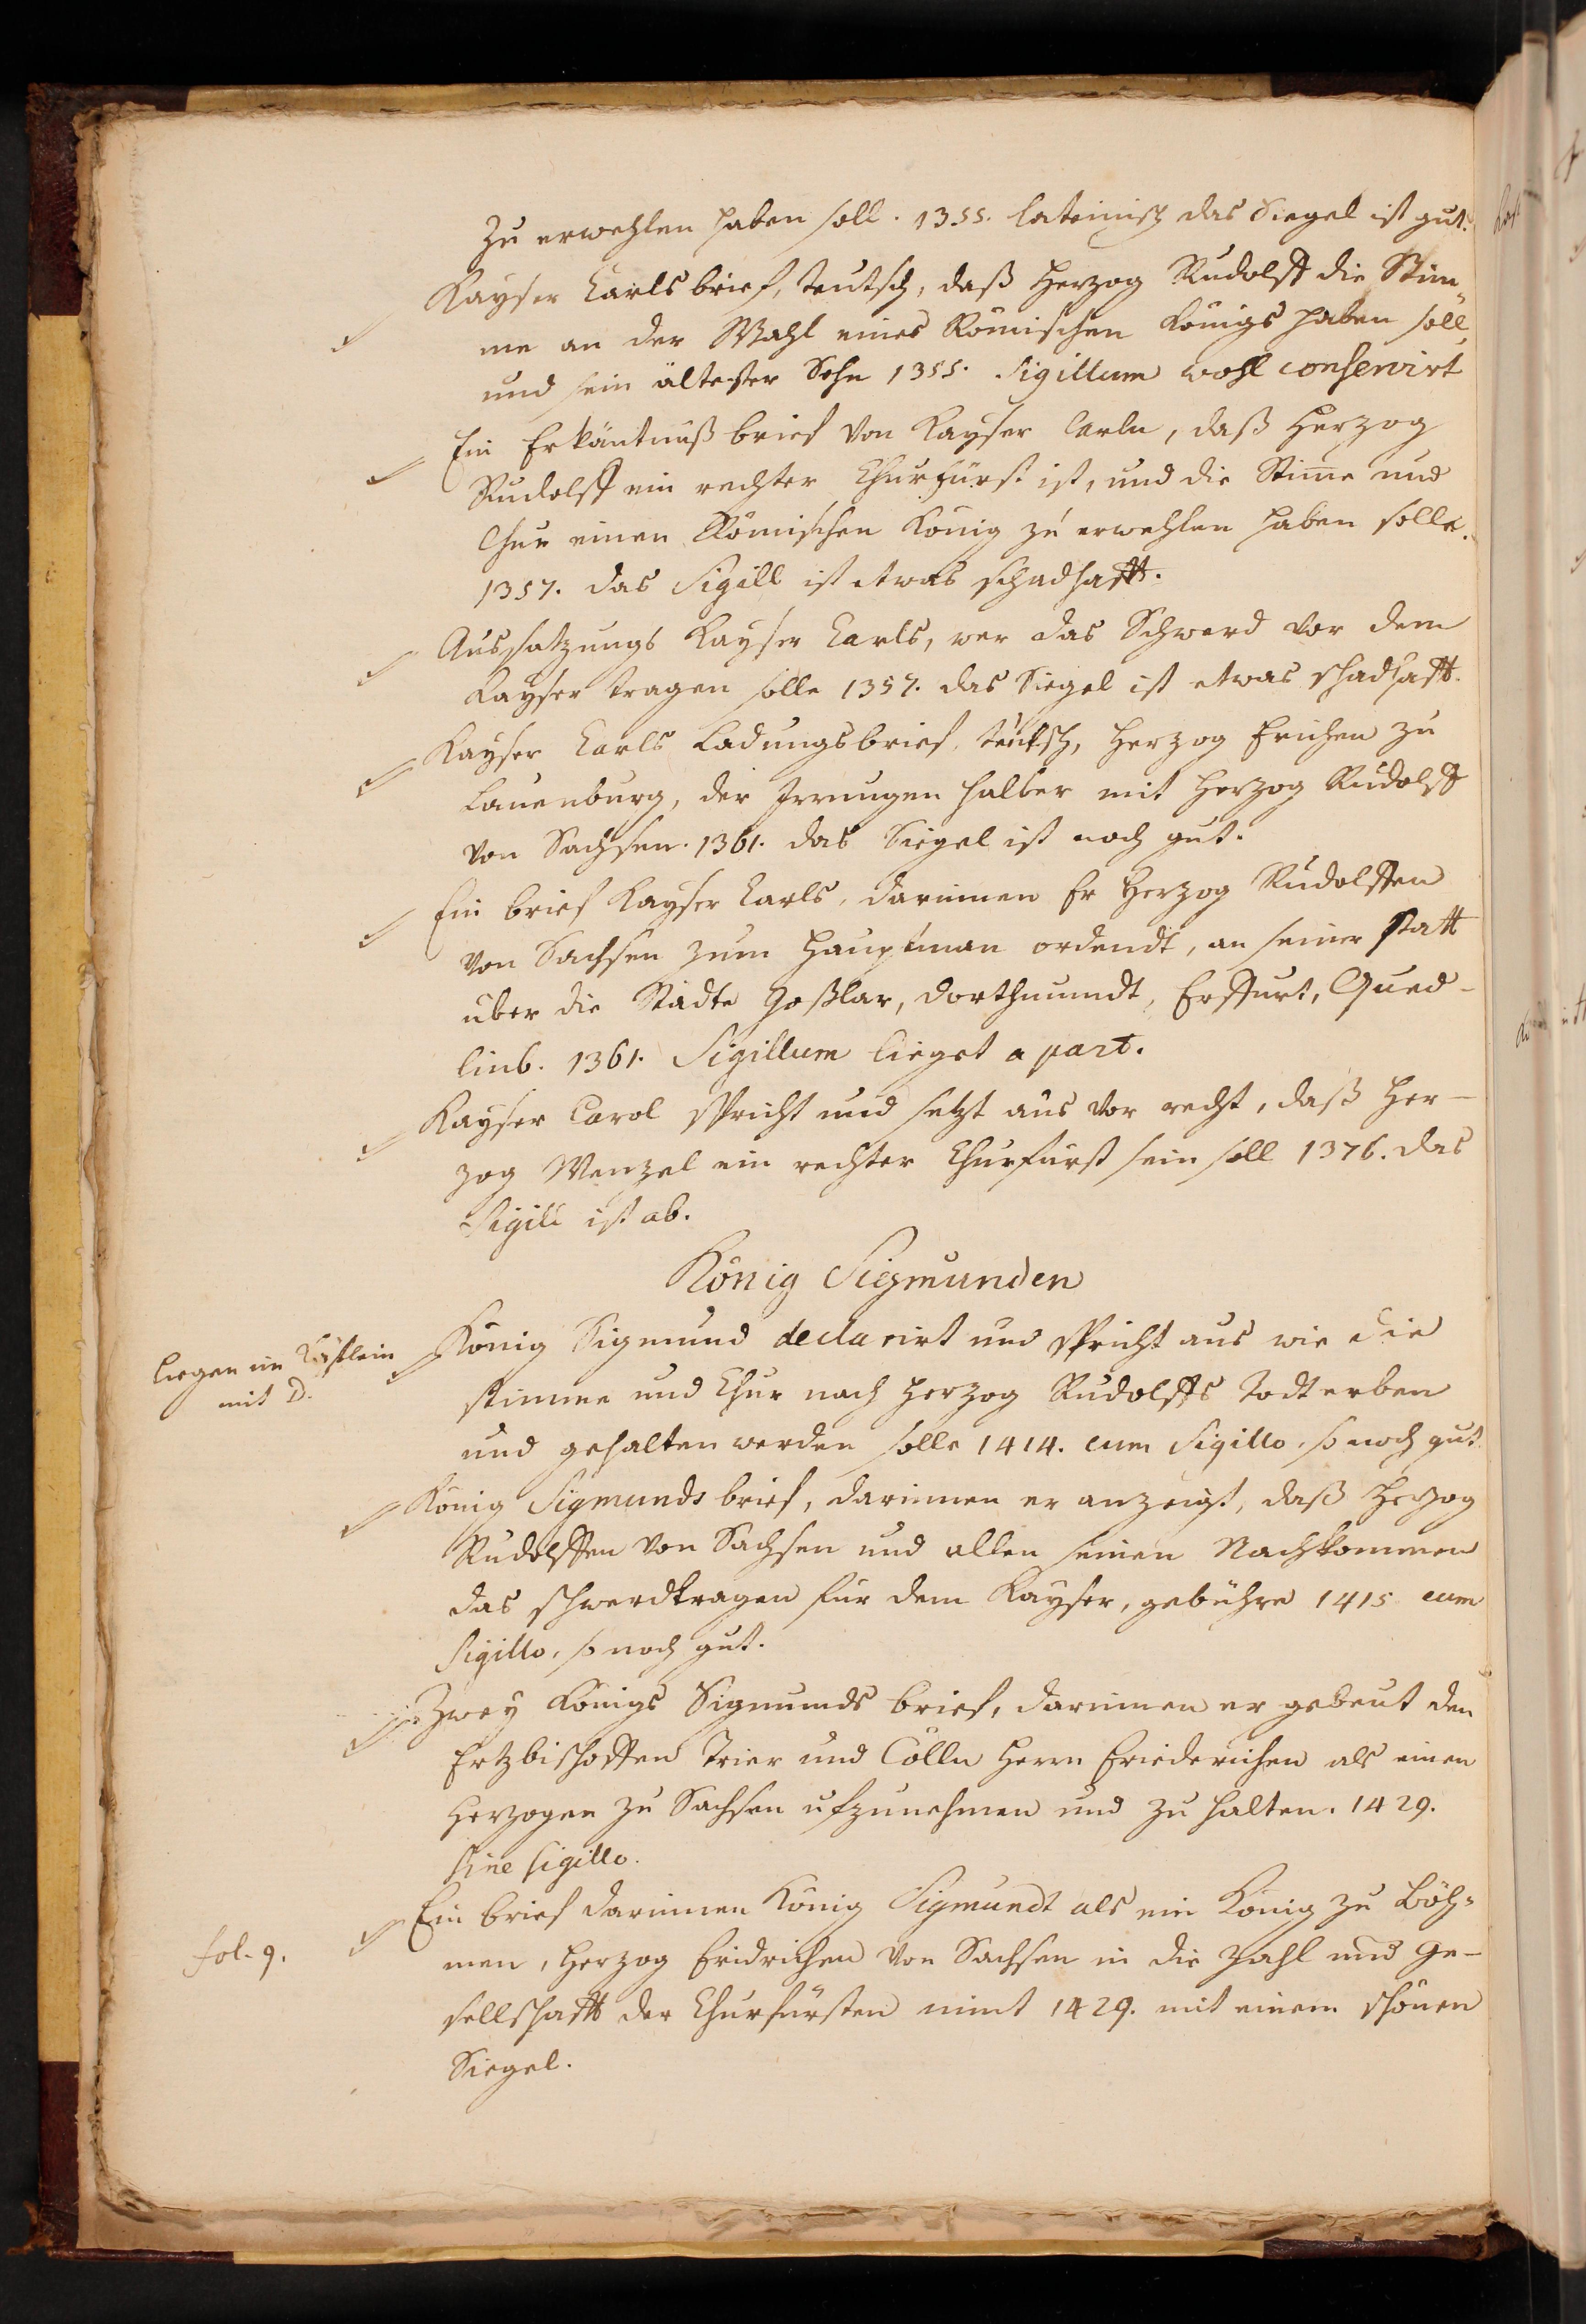 zu erwehlen haben soll. 1355. lateinisch das Siegel ist gut.
Kayser Carls brief, teutsch, daß Herzog Rudolff die Stim„
me an der Wahl eines Römischen Königs haben soll,
und sein ältester Sohn 1355. Sigillum wohl conservirt
Ein Erkäntnuß brief von Kayser Carln, daß Herzog
Rudolff ein rechter Churfürst ist, und die Stim̅e und
Chur einen Römischen König zu erwehlen haben solle.
1357. das Sigill ist etwas schadhafft.
Aussatzungs Kayser Carls, wer das Schwerd vor dem
Kayser tragen solle 1357. das Siegel ist etwas schadhafft.
Kayser Carls Ladungsbrief, teutsch, Herzog Erichen zu
Lauenburg, der Irrungen halber mit Herzog Rudolff
von Sachsen. 1361. das Siegel ist noch gut.
Ein brief Kayser Carls, darinnen Er Herzog Rudolffen
von Sachsen zum Hauptman ordendt, an seiner statt
über die Städte Goßlar, Dorthmundt, Erffurt, Qued-
linb. 1361. Sigillum lieget a part.
Kayser Carol spricht und setzt aus vor recht, daß Her-
zog Wenzel ein rechter Churfürst sein soll 1376. das
Sigill ist ab.
König Siegmunden
liegen im Kästlein
mit D.
König Sigmund declarirt und spricht aus wie die
stimme und Chur nach Herzog Rudolffs Todt erben
und gehalten werden solle 1414. cum Sigillo, so noch gut.
König Sigmunds brief, darinnen er anzeigt, daß Herzog
Rudolffen von Sachsen und allen seinen Nachkommen
das schwerdtragen für dem Kayser, gebühre 1415 cum
Sigillo, so noch gut.
Zwey Königs Sigmunds brief, darinnen er gebeut den
Ertzbischoffen Trier und Cölln Herrn Friederichen als einen
Herzogen zu Sachsen ufzunehmen und zu halten. 1429.
sine sigillo.
fol. 9.
Ein brief darinnen König Sigmundt als ein König zu Böh=
men, Herzog Fridrichen von Sachsen in die Zahl und Ge-
sellschafft der Churfürsten nimt 1429. mit einem schönen
Siegel.